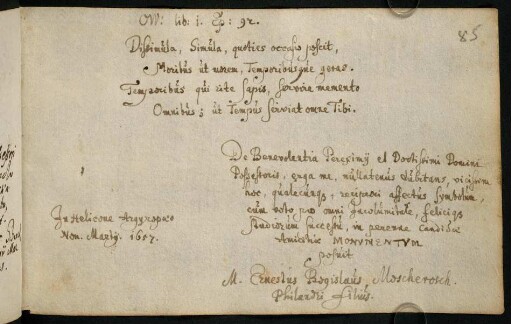 OW: lib: i. Ep: 92.
85
Dissimula, Simula, quoties occasio poscit,
Moribus ut morem, Temporibusque geras.
Temporibus qui rite sapis, servire memento
Omnibus; ut Tempus serviat omne Tibi.
De Benevolentia Perexmij et Doctissimi Domini
Possessoris, erga me, nullatenus dubitans, vicissim
hoc, qualecunq, reciproci affectus symbolum,
cum voto pro omni incolumitate, feliciq
studiorum successu, in perenne candidae
Amicitiae MONUMENTUM
posuit
M. Ernestus Bogislaus, Moscherosch.
Philandri filius.
In Helicone Argyropaeo
Non. Martij. 1657.